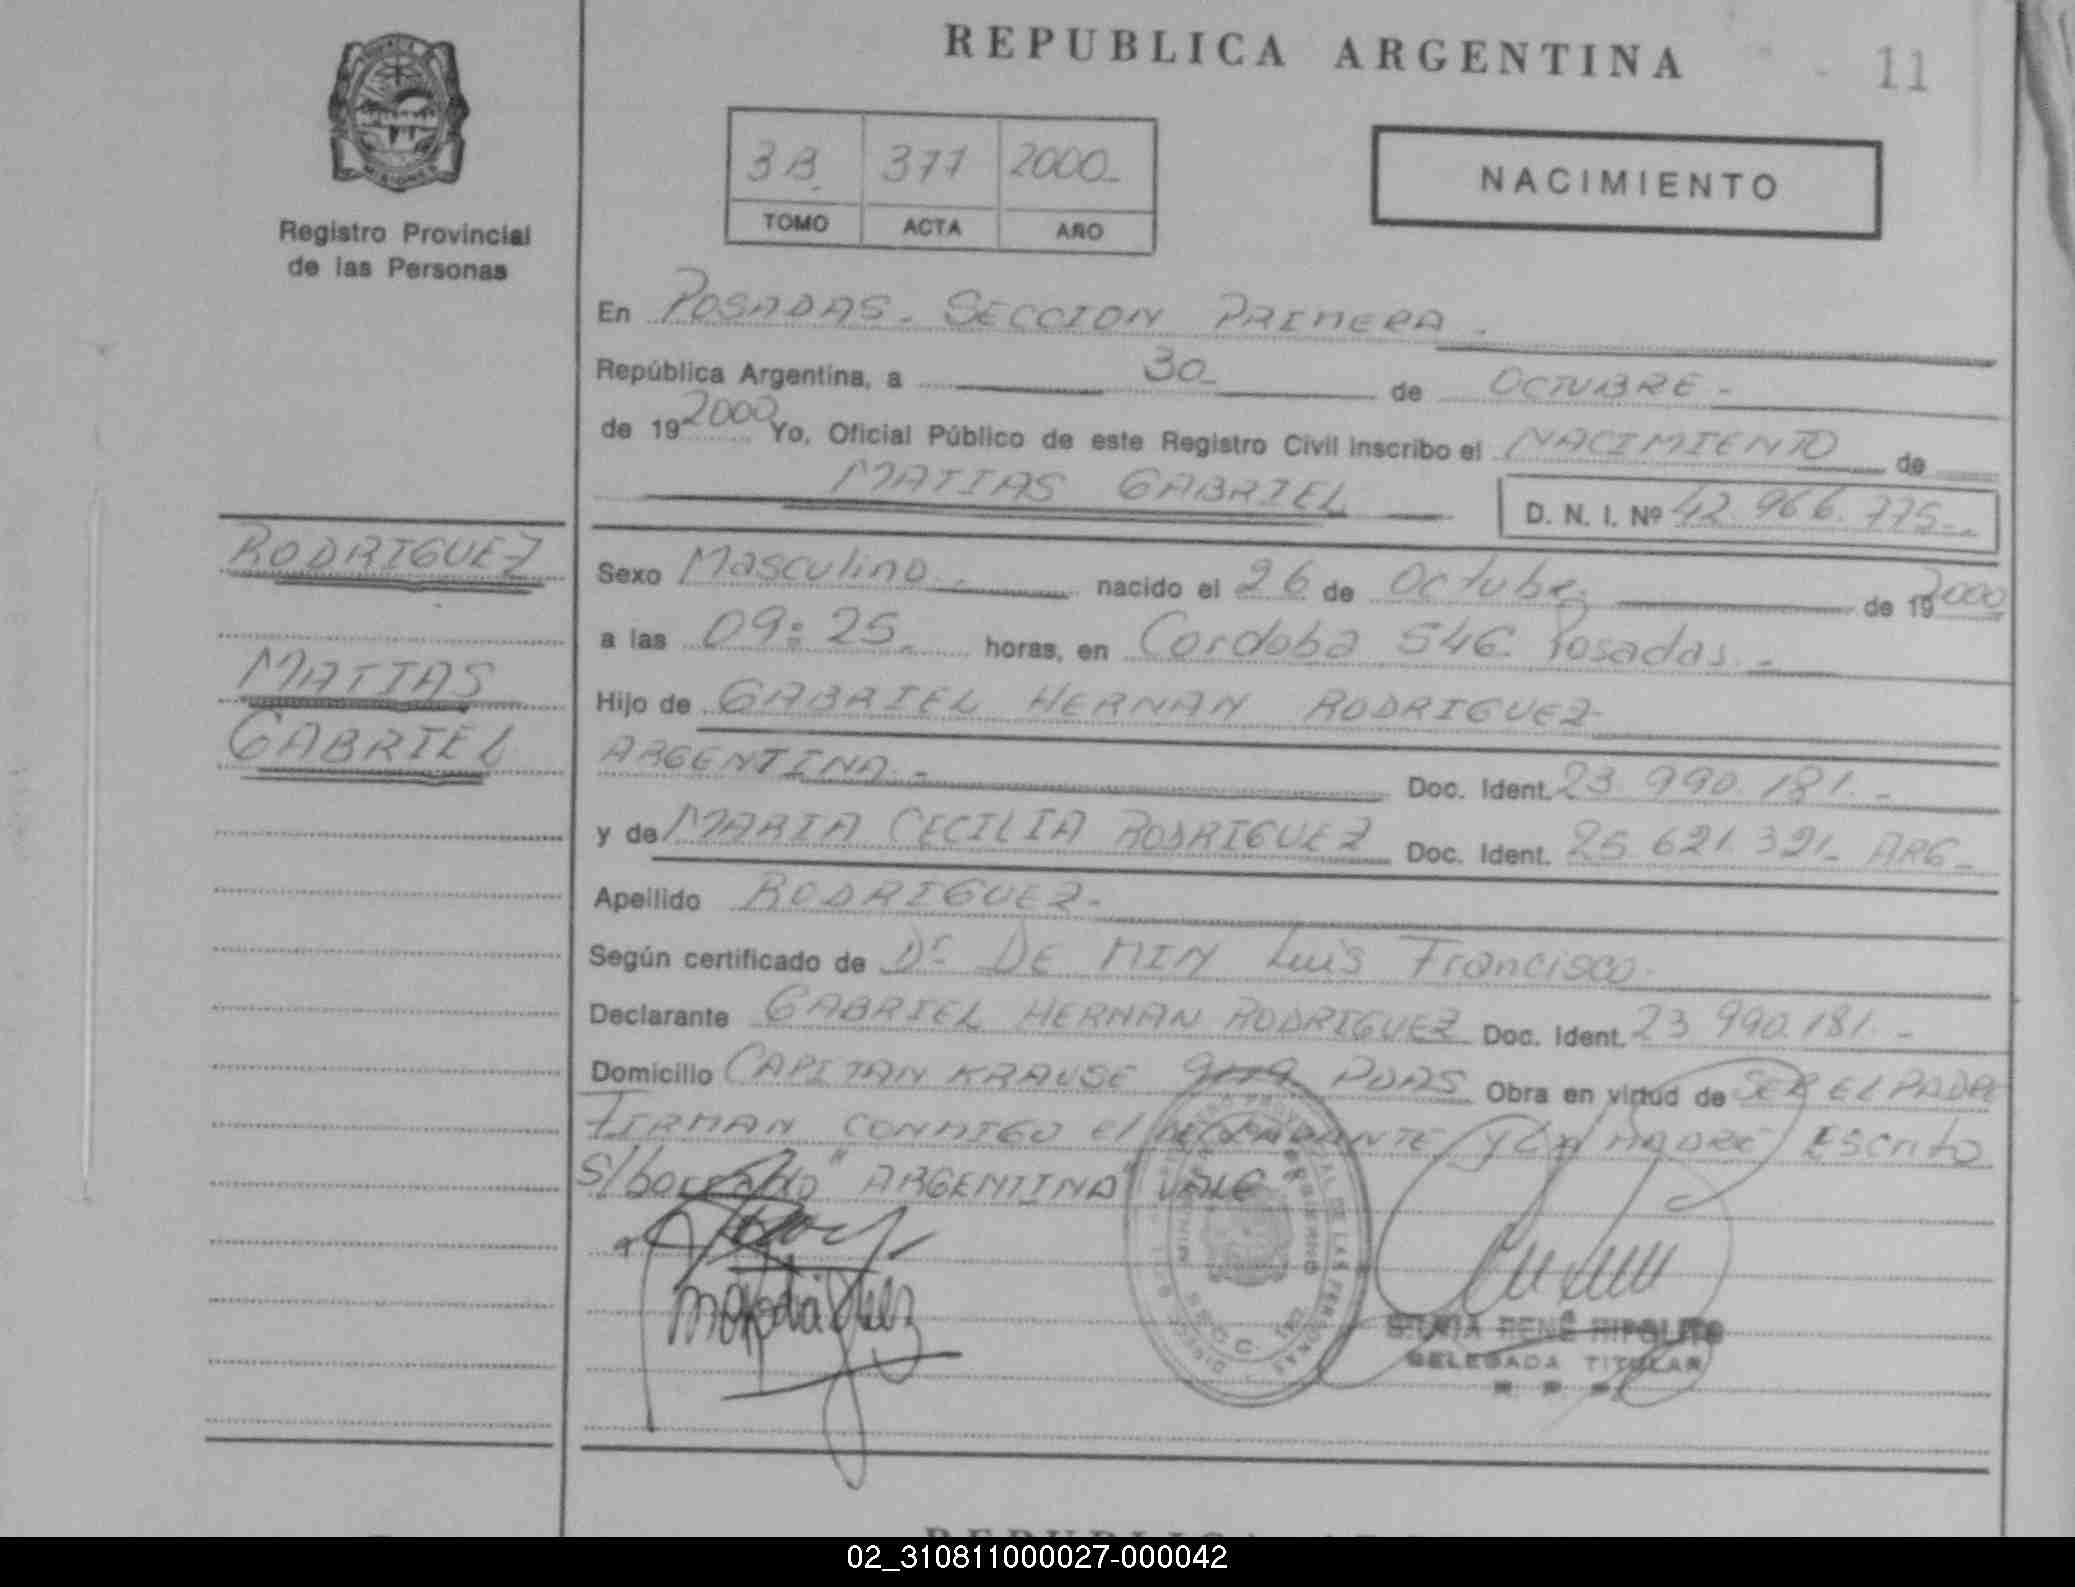 REPUBLICA ARGENTINA
11
MISIONES
Registro Provincial
de las Personas
3B 377 2000
TOMO ACTA AÑO
NACIMIENTO
En POSADAS. SECCION PRIMERA.
República Argentina, a 30 de OCTUBRE
de 19 2000 Yo, Oficial Público de este Registro Civil inscribo el NACIMIENTO de
MATIAS GABRIEL
D. N. I. Nº 42.966.775
RODRIGUEZ
MATIAS
GABRIEL
Sexo Masculino nacido el 26 de Octubre de 19 2000
a las 09:25 horas, en Cordoba 546. Posadas.
Hijo de GABRIEL HERNAN RODRIGUEZ
ARGENTINA Doc. Ident. 23.990.181.
y de MARIA CECILIA RODRIGUEZ Doc. Ident. 25.621.321 ARG
Apellido RODRIGUEZ
Según certificado de Dr DE MIN Luis Francisco.
Declarante GABRIEL HERNAN RODRIGUEZ Doc. Ident. 23.990.181.
Domicilio CAPITAN KRAUSE PDAS Obra en virtud de SER EL PADRE
FIRMAN CONMIGO el DECLARANTE Y LA MADRE Escrito
S/borrado "ARGENTINA" VALE
SILVIA RENÉ HIPOLITO
DELEGADA TITULAR
REPUBLICA
02_310811000027-000042